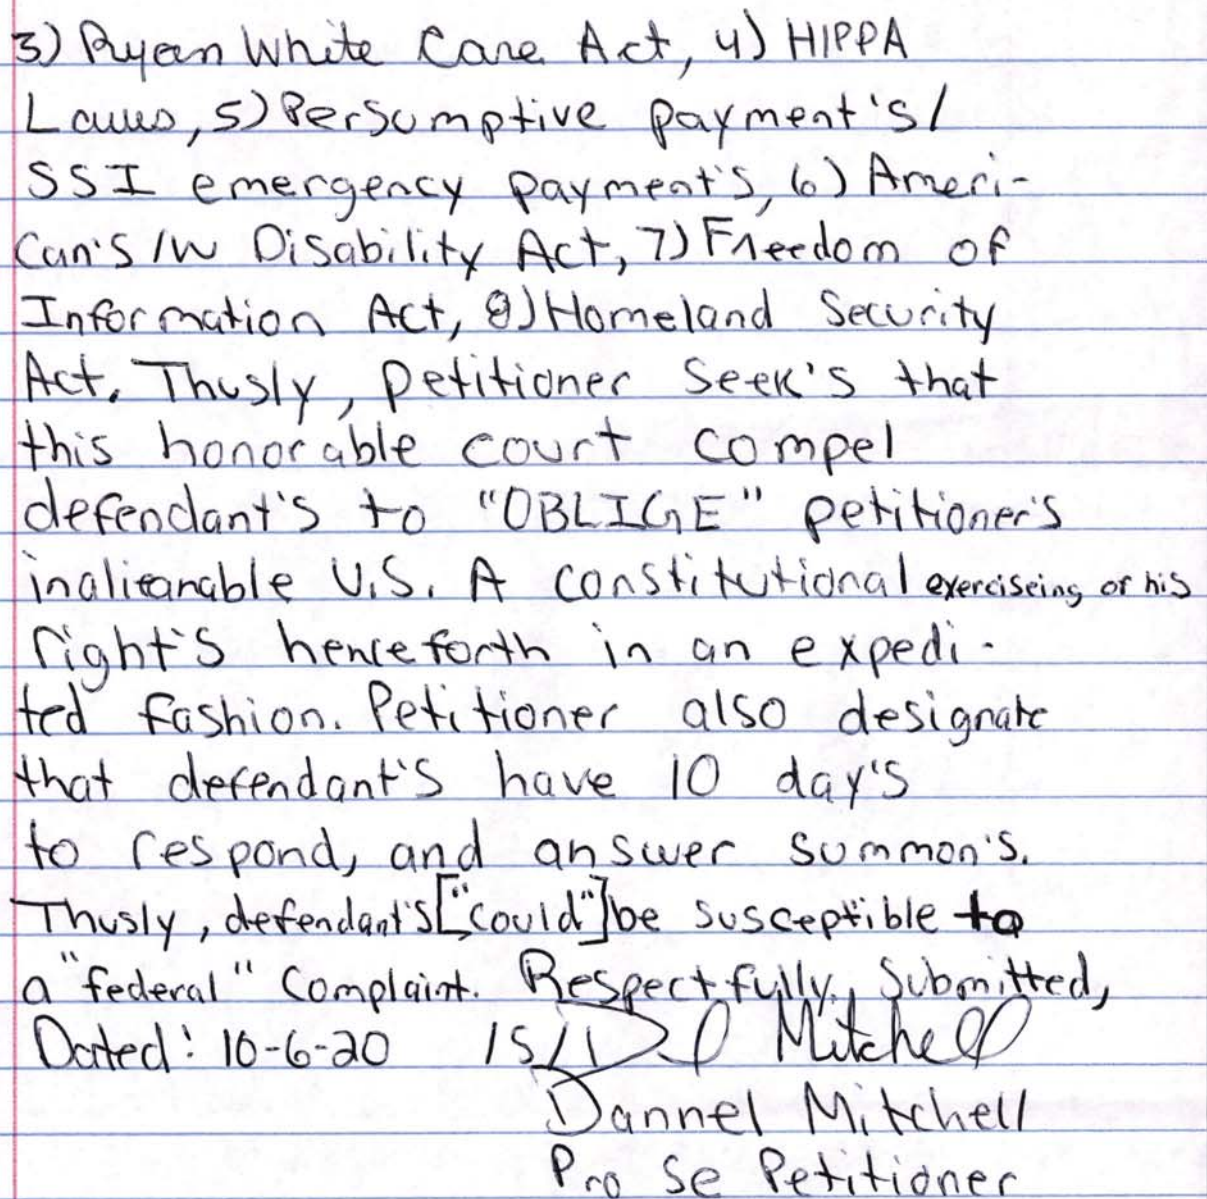 3) Ryan White Care Act, 4) HIPPA
Laws, 5) Persumptive payment's/
SSI emergency payment's, 6) Ameri-
can's /w Disability Act, 7) Freedom of
Information Act, 8) Homeland Security
Act. Thusly, petitioner seek's that
this honorable court compel
defendant's to "OBLIGE" petitioner's
inalieanable U.S. A constitutional exerciseing of his
right's henceforth in an expedi-
ted fashion. Petitioner also designate
that defendant's have 10 day's
to respond, and answer summon's.
Thusly, defendant's ["could"] be susceptible to
a "federal" complaint. Respectfully, Submitted,
Dated: 10-6-20 /S/ D Mitchell
Dannel Mitchell
Pro Se Petitioner